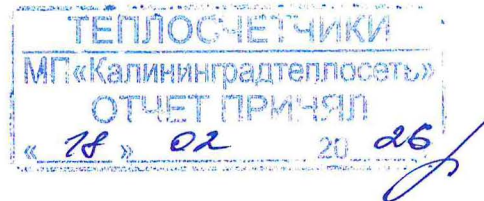 ТЕПЛОСЧЕТЧИКИ
МП«Калининградтеплосеть»
ОТЧЕТ ПРИНЯЛ
« 18 » 02 20 26